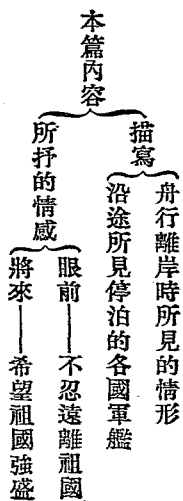 本篇內容
描寫
舟行離岸時所見的情形
沿途所見停泊的各國軍艦
所抒的情感
眼前——不忍遠離祖國
將來——希望祖國強盛